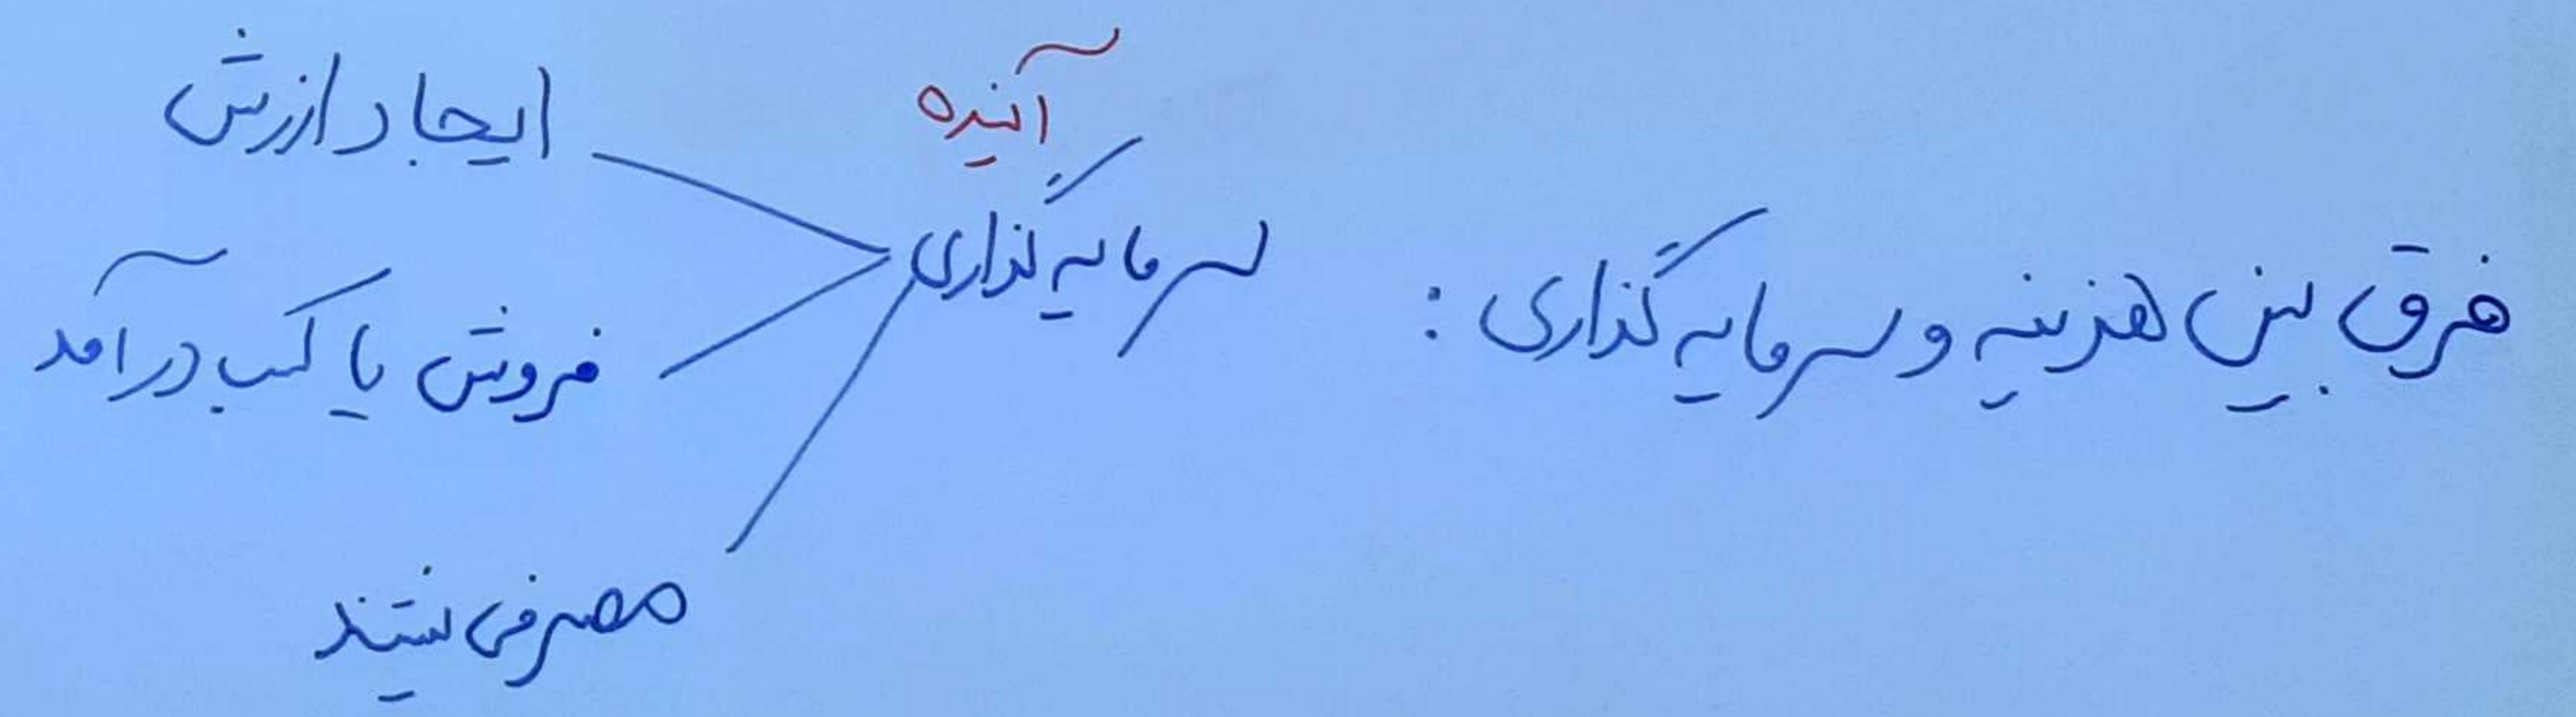 فرق بین هزینه و سرمایه گذاری :
آینده
سرمایه گذاری
ایجاد ارزش
فروش یا کسب درآمد
مصرفی نیستند